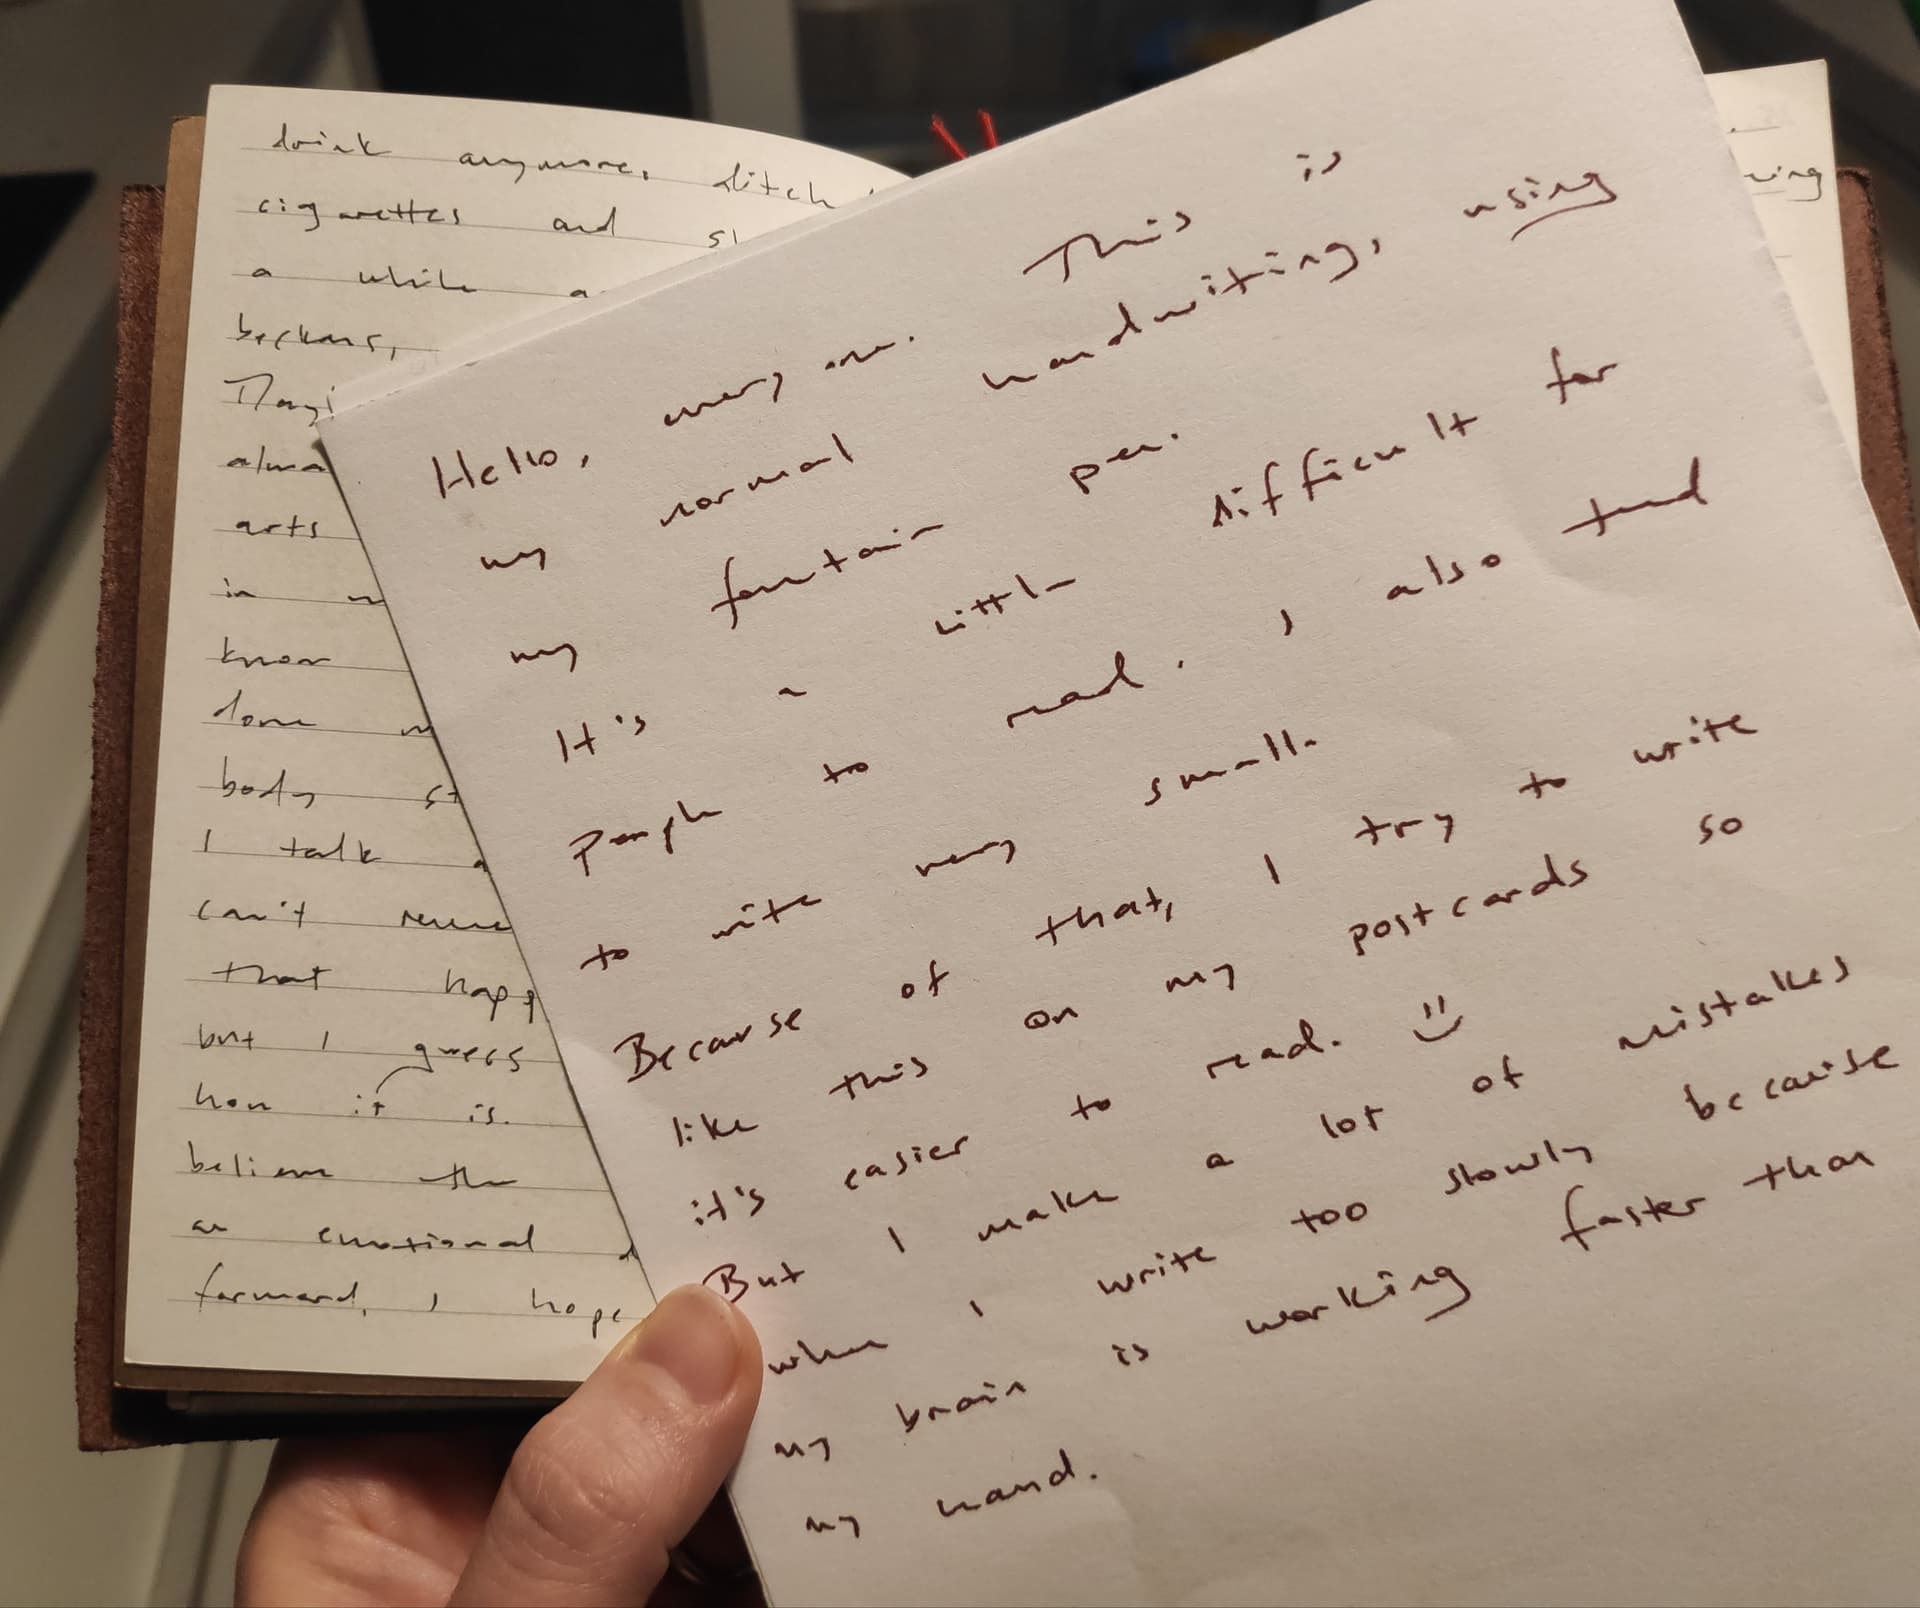 drink anymore, ditch
cigarettes and
a while a
beckons,
alma
arts
in
know
done
body st
I talk a
can't
that happ
but I guess
how it is.
believe the
an emotional
forward, I hope
Hello, everyone. This is
my normal handwriting, using
my fountain pen.
It's a little difficult for
people to read. I also tend
to write very small.
Because of that, I try to write
like this on my postcards so
it's easier to read. :)
But I make a lot of mistakes
when I write too slowly because
my brain is working faster than
my hand.